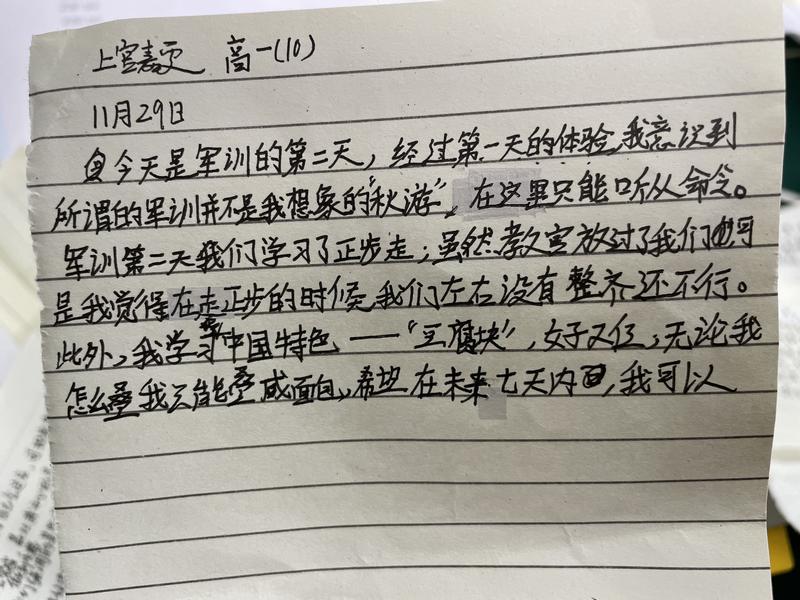 上官 高一(10)
11月29日
今天是军训的第二天，经过第一天的体验，我意识到
所谓的军训并不是我想象的“秋游”，在这里只能听从命令。
军训第二天我们学习了正步走；虽然教官放过了我们 可
是我觉得在走正步的时候，我们左右没有整齐还不行。
此外，我学习 中国特色 ——“豆腐块”，好又仅，无论我
怎么叠我只能叠成面包，希望在未来七天内，我可以